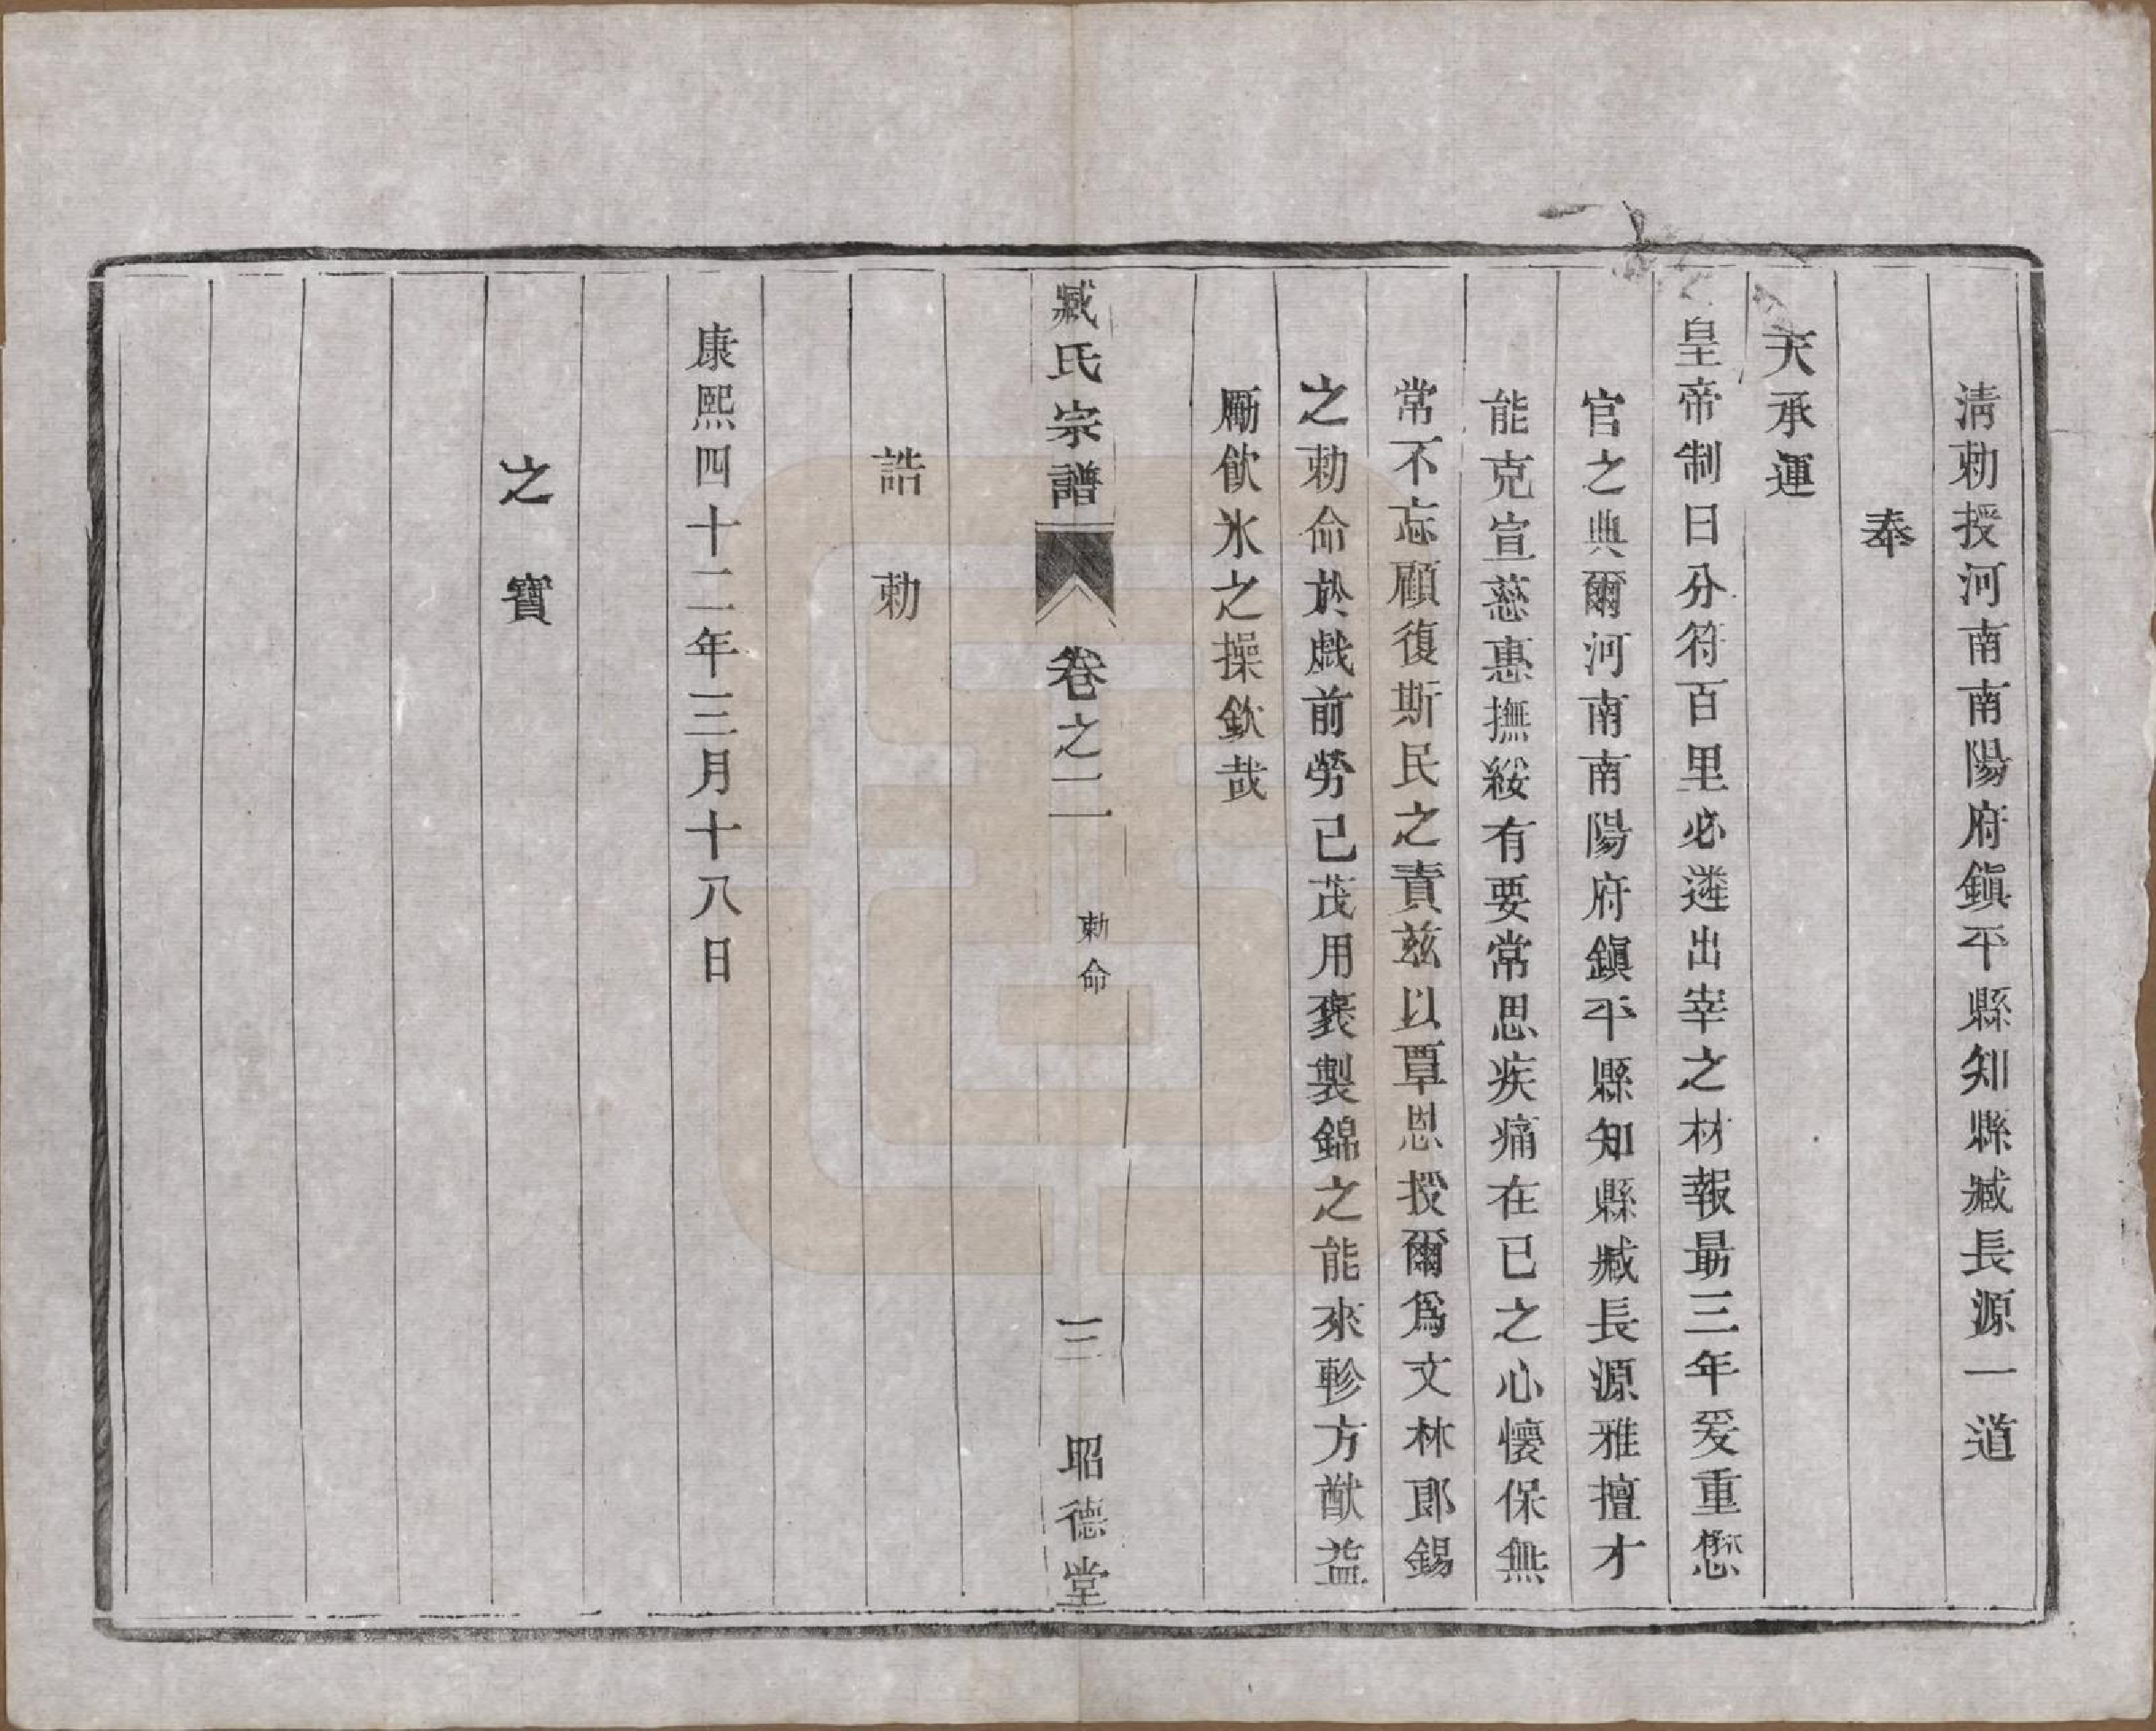 淸勅授河南南陽府鎭平縣知縣臧長源一道
奉
天承運
皇帝制曰分符百里必遴出宰之材報最三年爰重懋
官之典爾河南南陽府鎭平縣知縣臧長源雅擅才
能克宣慈惠撫綏有要常思疾痛在已之心懷保無
常不忘顧復斯民之責兹以覃恩授爾爲文林郎錫
之勅命於戲前勞已茂用褒製錦之能來軫方猷益
勵飮氷之操欽哉
臧氏宗譜
卷之二
勅命
三
昭德堂
誥勅
康熙四十二年三月十八日
之寶